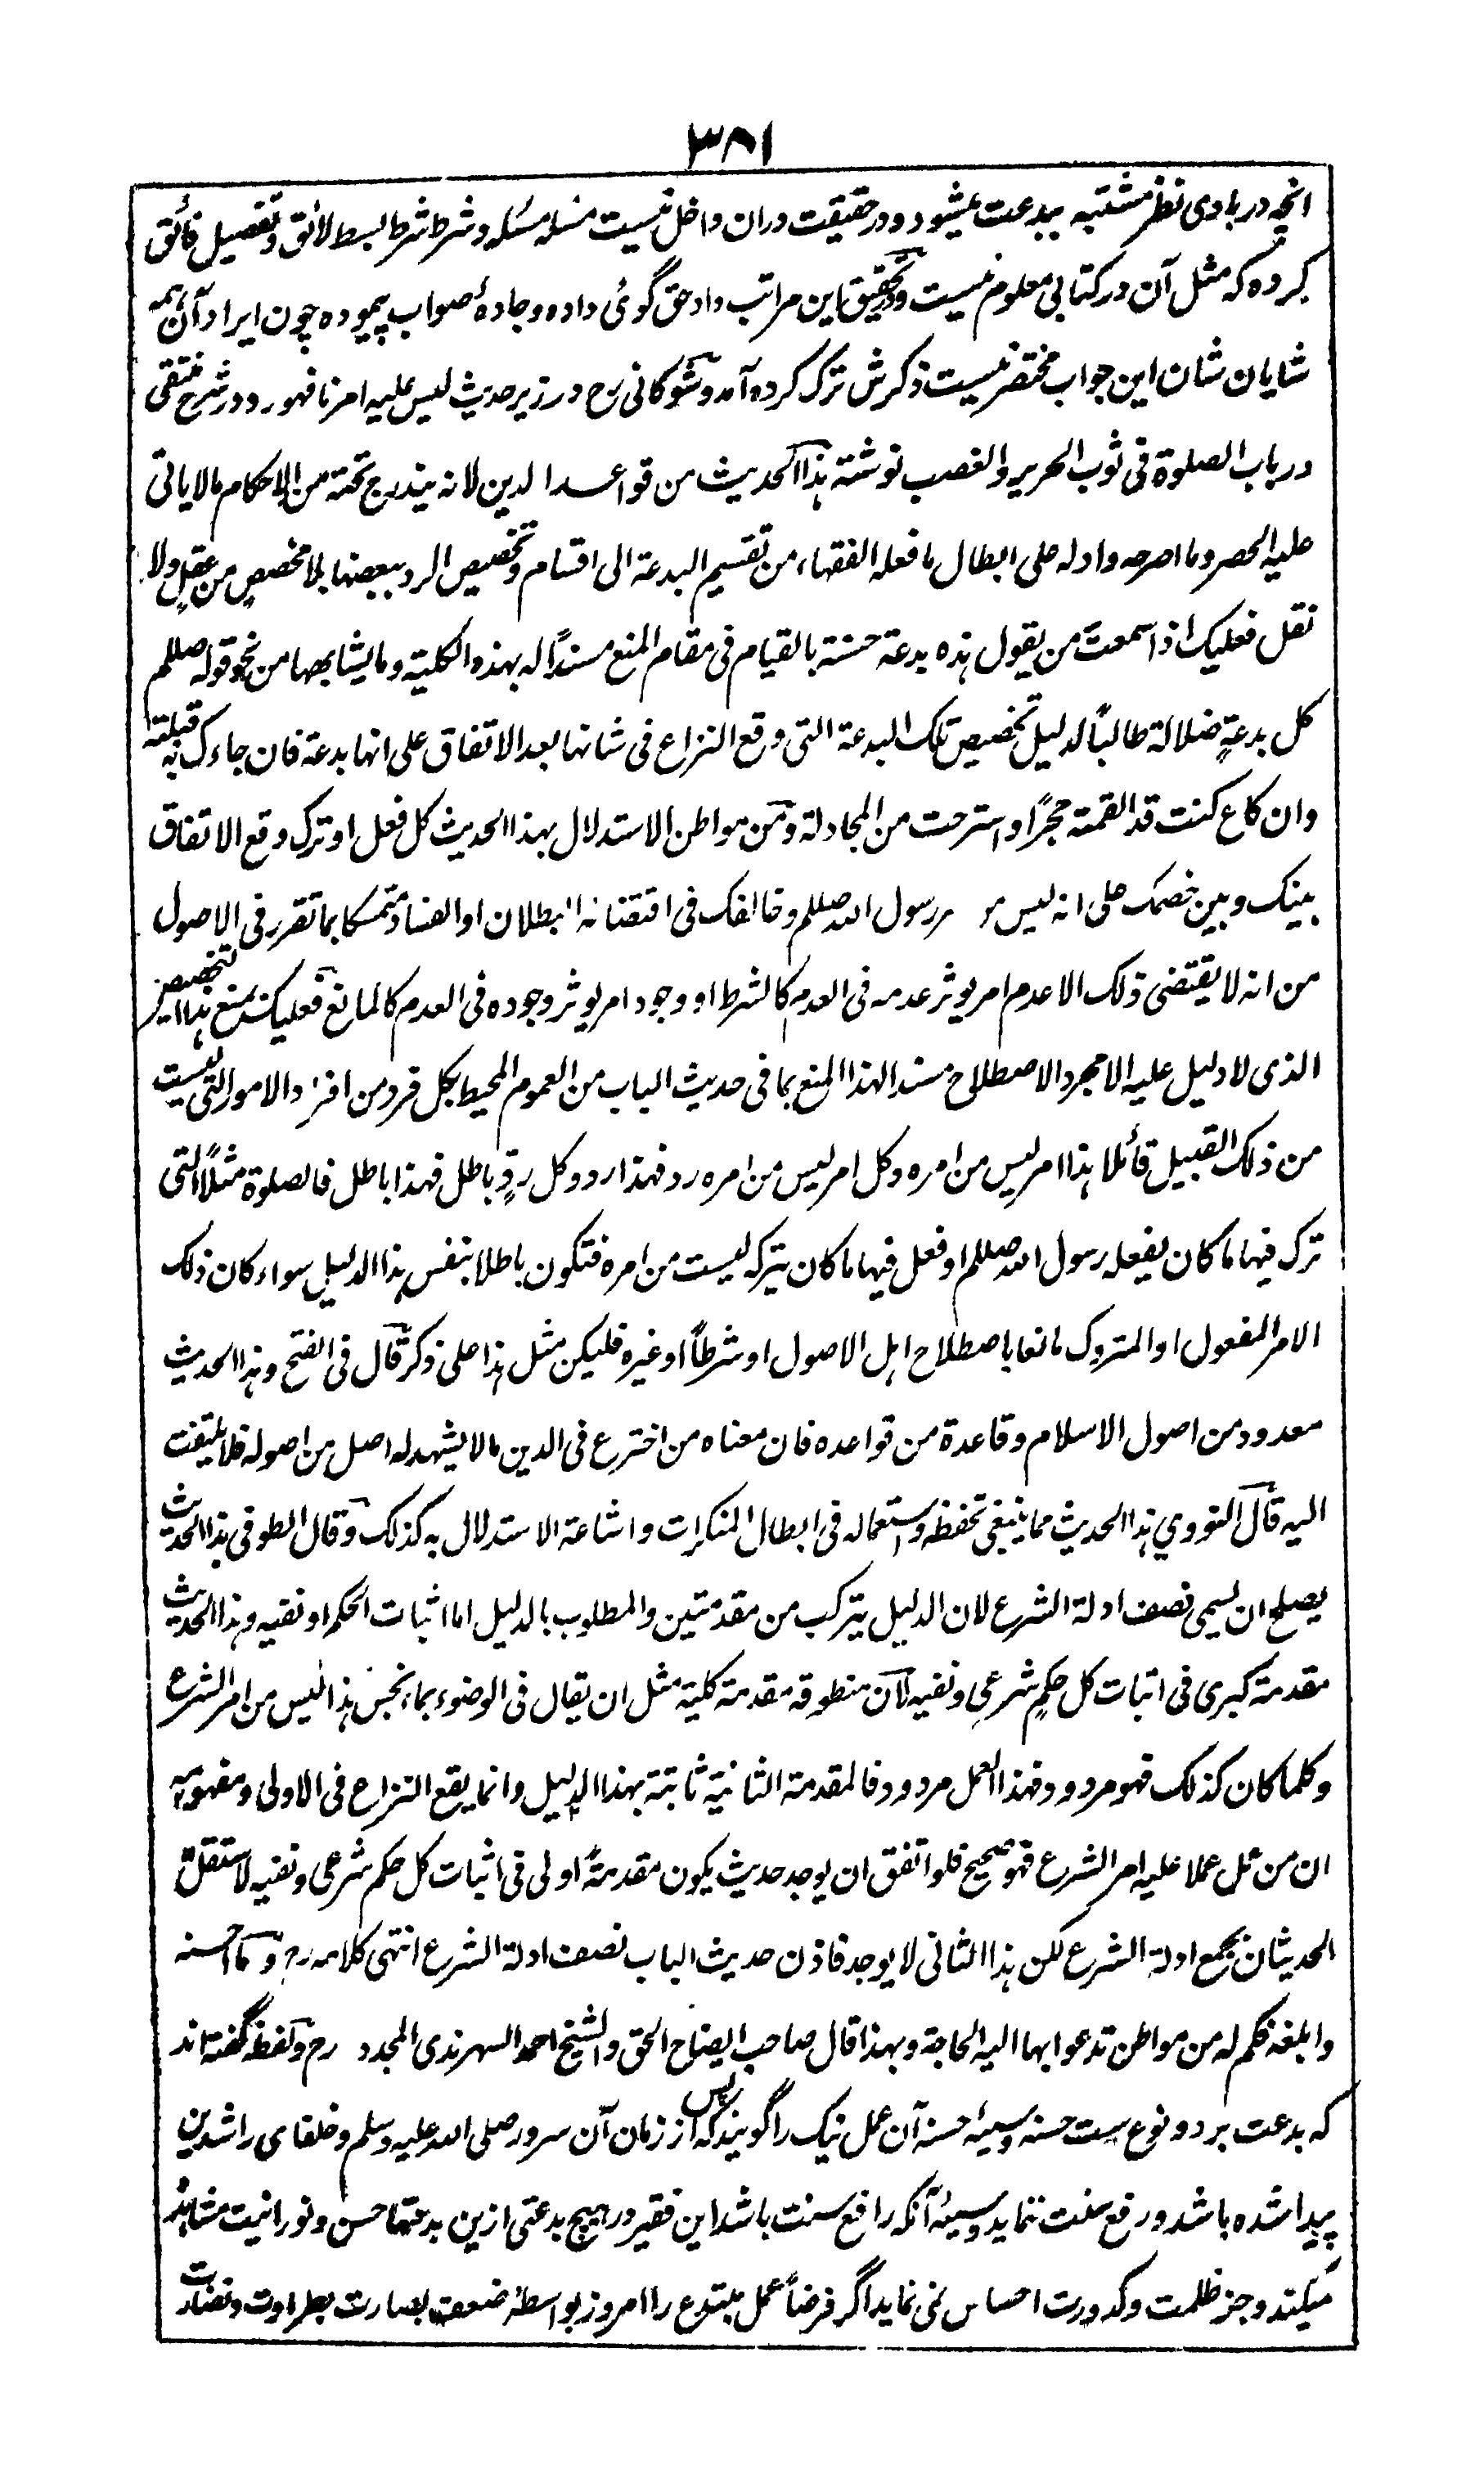 ۳۸۱
انچه در بادی نظر مشتبه ببدعت میشود و در حقیقت دران داخل نیست مسئله مسئله و شرط شرط بسط لائق و تفصیل فائق
کرده که مثل آن در کتابی معلوم نیست و در تحقیق این مراتب داد حق گوئی داده و جادهٔ صواب پیموده چون ایراد آن همه
شایان شان این جواب مختصر نیست ذکرش ترک کرده آمد و شوکانی رح در زیر حدیث لیس علیه امرنا فهو رد در شرح منتقی
در باب الصلوة فی ثوب الحریر والغصب نوشته هذا الحدیث من قواعد الدین لانه یندرج تحته من الاحکام مالا یاتی
علیه الحصر وما اصرحه وادله علی ابطال ما فعله الفقهاء من تقسیم البدعة الی اقسام وتخصیص الرد ببعضها بلا مخصص من عقل ولا
نقل فعلیک اذا سمعت من یقول هذه بدعة حسنة بالقیام فی مقام المنع مسنداً له بهذه الکلیة وما یشابهها من نحو قوله صللم
کل بدعةٍ ضلالة طالباً لدلیل تخصیص تلک البدعة التی وقع النزاع فی شانها بعد الاتفاق علی انها بدعة فان جاءک به قبلته
وان کاع کنت قد القمته حجراً واسترحت من المجادلة ومن مواطن الاستدلال بهذا الحدیث کل فعل او ترک وقع الاتفاق
بینک وبین خصمک علی انه لیس من امر رسول الله صللم وخالفک فی اقتضائه البطلان او الفساد متمسکا بما تقرر فی الاصول
من انه لا یقتضی ذلک الا عدم امر یوثر عدمه فی العدم کالشرط او وجود امر یوثر وجوده فی العدم کالمانع فعلیک بمنع هذا التخصیص
الذی لا دلیل علیه الا مجرد الاصطلاح مسندا لهذا المنع بما فی حدیث الباب من العموم المحیط بکل فرد من افراد الامور التی لیست
من ذلک القبیل قائلا هذا امر لیس من امره وکل امر لیس من امره رد فهذا رد وکل ردٍ باطل فهذا باطل فالصلوة مثلاً التی
ترک فیها ما کان یفعله رسول الله صللم او فعل فیها ما کان یترکه لیست من امره فتکون باطلا بنفس هذا الدلیل سواء کان ذلک
الامر المفعول او المتروک مانعا باصطلاح اهل الاصول او شرطاً او غیره فلیکن مثل هذا علی ذکر قال فی الفتح وهذا الحدیث
معدود من اصول الاسلام وقاعدة من قواعده فان معناه من اخترع فی الدین مالا یشهد له اصل من اصوله فلا یلتفت
الیه قال النووی هذا الحدیث مما ینبغی تحفظه واستعماله فی ابطال المنکرات واشاعة الاستدلال به کذلک وقال الطوفی هذا الحدیث
یصلح ان یسمی نصف ادلة الشرع لان الدلیل یترکب من مقدمتین والمطلوب بالدلیل اما اثبات الحکم او نفیه وهذا الحدیث
مقدمة کبری فی اثبات کل حکمٍ شرعیٍ ونفیه لان منطوقه مقدمة کلیة مثل ان یقال فی الوضوء بماء نجس هذا لیس من امر الشرع
وکلما کان کذلک فهو مردود فهذا العمل مردود فالمقدمة الثانیة ثابتة بهذا الدلیل وانما یقع النزاع فی الاولی ومفهومه
ان من عمل عملا علیه امر الشرع فهو صحیح فلو اتفق ان یوجد حدیث یکون مقدمةً اولی فی اثبات کل حکم شرعی ونفیه لاستقل
الحدیثان بجمیع ادلة الشرع لکن هذا الثانی لا یوجد فاذن حدیث الباب نصف ادلة الشرع انتهی کلامه رح وما احسنه
وابلغه فکم له من مواطن تدعوا بها الیه الحاجة وبهذا قال صاحب ایضاح الحق والشیخ احمد السهرندی المجدد رح ولفظه گفته اند
که بدعت بر دو نوع ست حسنه و سیئه حسنه آن عمل نیک را گویند که پس از زمان آن سرور صلی الله علیه وسلم و خلفای راشدین
پیدا شده باشد و رفع سنت ننماید و سیئه آنکه رافع سنت باشد این فقیر در هیچ بدعتی ازین بدعتها حسن و نورانیت مشاهده
نمیکند و جز ظلمت و کدورت احساس نمی نماید اگر فرضاً عمل مبتدع را امروز بواسطهٔ ضعف بصارت بطراوت و نضارت